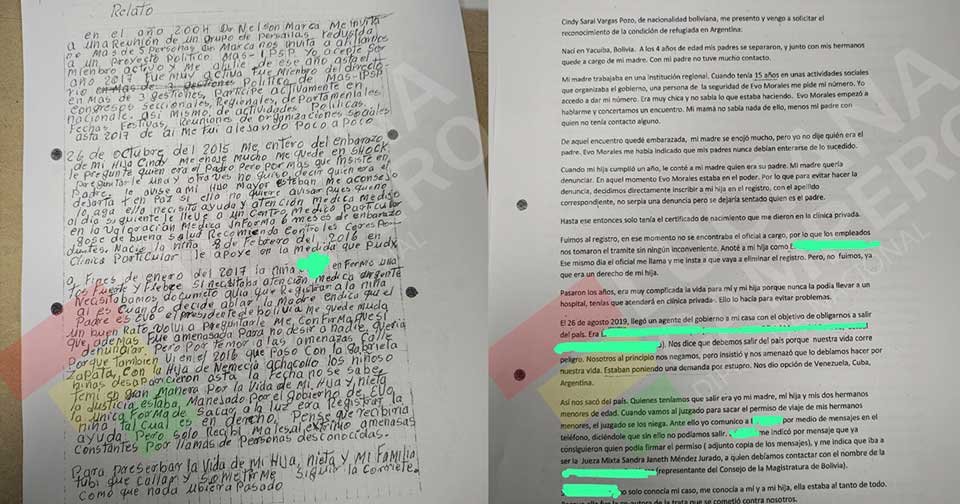 Relato
en el año 2004 Dr Nelson Marca Me invita
a una Reunión de un grupo de personas, redusida
no Mas de 5 personas Dr Marca nos invita a afiliarnos
a un Proyecto Politico MAS-IPSP Yo acepte ser
miembro activo y Me afilie de ese año asta el
año 2017 fue muy activa fue Miembro del directo-
rio en Mas de 3 gestiones Politica de Mas-IPSP
en Mas de 3 gestiones, Participe activamente en
Congresos Seccionales, Regionales, departamentales
nacionale. asi Mismo, de actividades Politicas.
Fechas Festivas, Reuniones de organizaciones sosiales
asta 2017 de lai Me fui alejando Poco a Poco.
26 de octubre del 2015 Me entero del embarazo
de mi Hija Cindy Me enoje mucho Me quede en SHOCK.
le Pregunte quien era el Padre Pero Por mas que insiste en
Preguntarle una y otra vez no quiso decir quien era el
Padre, le avise a mi Hijo Mayor esteban Me aconsejo
dejarla en Paz si ello no quiere avisar Pues que no
lo aga ella nesesita ayuda y atención Medica Mediso
al dia siguiente la lleve a un centro Medico Particular
en la Valoración Medica informo 6 meses de enbarazo
gose de buena Salud Recomiendo Controles Correspon-
dientes Nacio la niña 8 de Febrero del 2016 en
Clinica Particular le apoye en la Medida que pude
a Fines de enero del 2017 la niña enfermo una
tos Fuerte y Fiebre Si necesitaba atención Medica urgente
Necisitabamos documeto avia que Registrar a la niña
ai es Cuando decide ablar la Madre indica que el
Padre es Evo el presidente de bolivia Me quede muda
un buen Rato Volvi a Preguntarle Me confirma que si
que, ademas Fue amenasada no desir a nadie, queria
denunciar. Pero Por temor a las amenazas calle
Porque tambien Vi en el 2016 que Paso con la Gabriela
Zapata, con la Hija de Nemecia achacollo los niñoso
niñas desaparicieron asta la fecha no se sabe,
Temi en gran Manera Por la Vida de Mi Hija y nieta
la Justicia estaba, Manesado Por el gobierno de Evo,
la unica Forma de Sacar a la luz era Registrar la
niña tal cual es en derecho, Pense que recibiria
ayuda Pero Solo Recibi Malesal extrimo amenasas
Constantes Por llamas de Personas desconocidas.
Para preserbar la Vida de Mi Hija, nieta y Mi Familia
tubi que callar y someterme Siguir la corriete
Como que nada ubiera Pasado
Cindy Sarai Vargas Pozo, de nacionalidad boliviana, me presento y vengo a solicitar el
reconocimiento de la condición de refugiada en Argentina:
Nací en Yacuiba, Bolivia. A los 4 años de edad mis padres se separaron, y junto con mis hermanos
quede a cargo de mi madre. Con mi padre no tuve mucho contacto.
Mi madre trabajaba en una institución regional. Cuando tenía 15 años en unas actividades sociales
que organizaba el gobierno, una persona de la seguridad de Evo Morales me pide mi número. Yo
accedo a dar mi número. Era muy chica y no sabía lo que estaba haciendo. Evo Morales empezó a
hablarme y concertamos un encuentro. Mi mamá no sabía nada de ello, menos mi padre con
quien no tenía contacto alguno.
De aquel encuentro quedé embarazada, mi madre se enojó mucho, pero yo no dije quién era el
padre. Evo Morales me había indicado que mis padres nunca debían enterarse de lo sucedido.
Cuando mi hija cumplió un año, le conté a mi madre quien era su padre. Mi madre quería
denunciar. En aquel momento Evo Morales estaba en el poder. Por lo que para evitar hacer la
denuncia, decidimos directamente inscribir a mi hija en el registro, con el apellido
correspondiente, no serpia una denuncia pero se dejaría sentado quien es el padre.
Hasta ese entonces solo tenía el certificado de nacimiento que me dieron en la clínica privada.
Fuimos al registro, en ese momento no se encontraba el oficial a cargo, por lo que los empleados
nos tomaron el tramite sin ningún inconveniente. Anoté a mi hija como
Ese mismo día el oficial me llama y me insta a que vaya a eliminar el registro. Pero, no fuimos, ya
que era un derecho de mi hija.
Pasaron los años, era muy complicada la vida para mí y mi hija porque nunca la podía llevar a un
hospital, tenías que atenderá en clínica privada. Ello lo hacía para evitar problemas.
El 26 de agosto 2019, llegó un agente del gobierno a mi casa con el objetivo de obligarnos a salir
del país. Era
). Nos dice que debemos salir del país porque nuestra vida corre
peligro. Nosotros al principio nos negamos, pero insistió y nos amenazó que lo debíamos hacer por
nuestra vida. Estaban poniendo una demanda por estupro. Nos dio opción de Venezuela, Cuba,
Argentina.
Así nos sacó del país. Quienes teníamos que salir era yo mi madre, mi hija y mis dos hermanos
menores de edad. Cuando vamos al juzgado para sacar el permiso de viaje de mis hermanos
menores, el juzgado se los niega. Ante ello yo comunico a por medio de mensajes en el
teléfono, diciéndole que sin ello no podíamos salir. me indicó por mensaje que ya
consiguieron quien podía firmar el permiso ( adjunto copia de los mensajes), y me indica que iba a
ser la Jueza Mixta Sandra Janeth Méndez Jurado, a quien debíamos contactar con el nombre de la
(representante del Consejo de la Magistratura de Bolivia).
no solo conocía mi caso, me conocía a mí y a mi hija, ella estaba al tanto de todo.